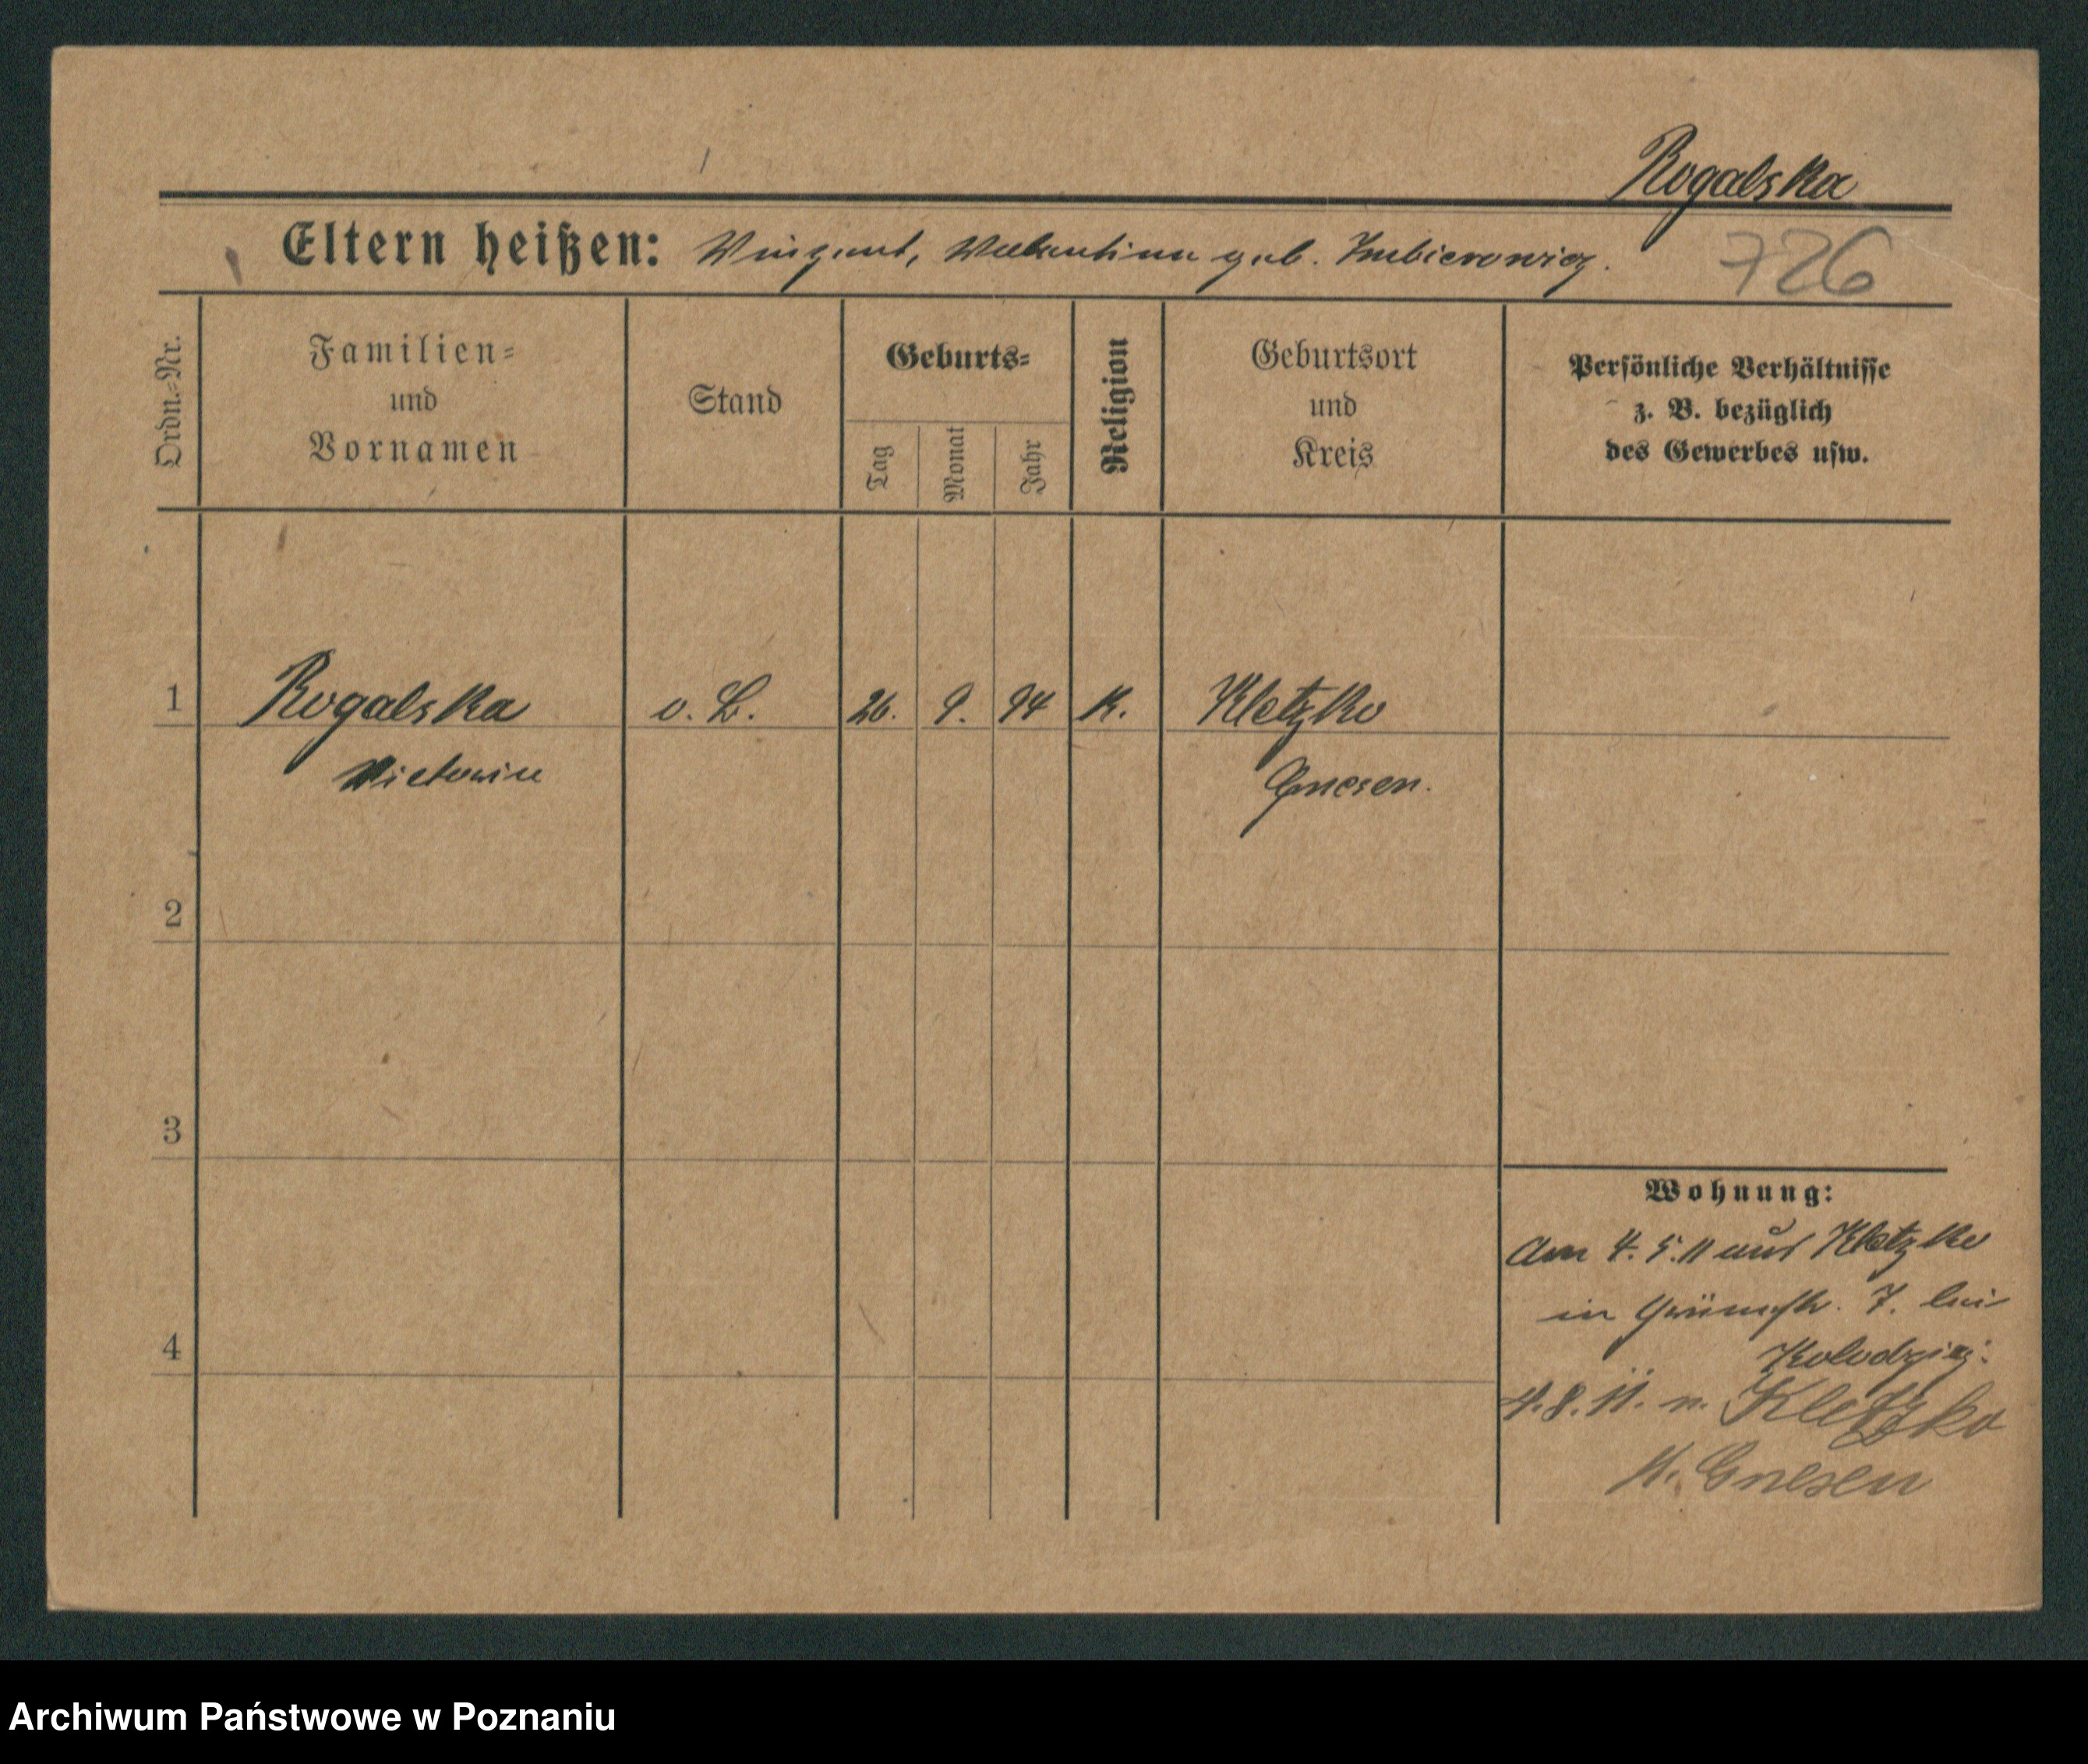 Rogalska
Eltern heißen: Vinzent, Valentina geb. Imbierowicz.
726
Ordn.-Nr.
Familien-
und
Vornamen
Stand
Geburts-
Tag
Monat
Jahr
Religion
Geburtsort
und
Kreis
Persönliche Verhältnisse
z. B. bezüglich
des Gewerbes usw.
1 Rogalska o. B. 26. 9. 94 K. Kletzko
Victoria Gnesen.
2
3
Wohnung:
Am 4. 5. 11 aus Kletzko
in Grünestr. 7. bei
4
Kolodziej.
4. 8. 11. n. Kletzko
K. Gnesen
Archiwum Państwowe w Poznaniu